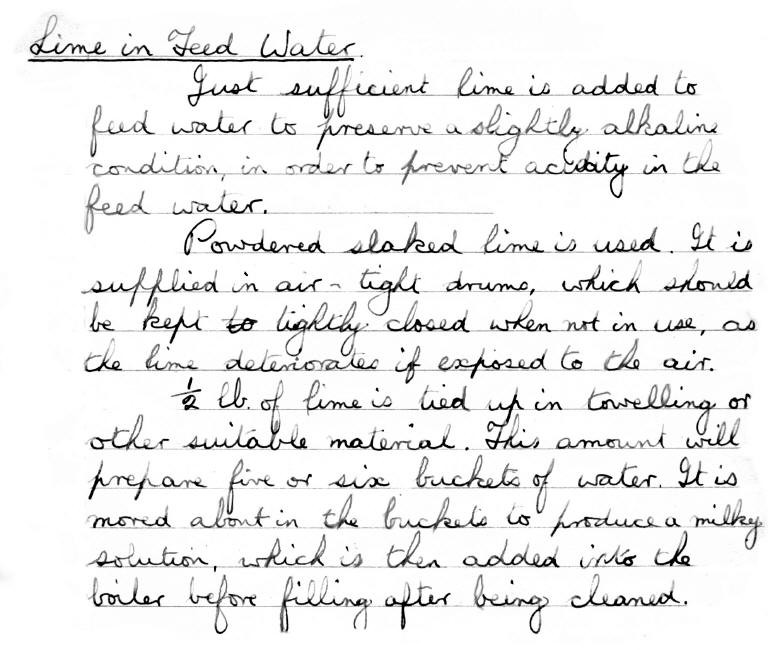 Lime in Feed Water.
Just sufficient lime is added to
feed water to preserve a slightly alkaline
condition, in order to prevent acidity in the
feed water.
Powdered slaked lime is used. It is
supplied in air-tight drums, which should
be kept to tightly closed when not in use, as
the lime deteriorates if exposed to the air.
½ lb. of lime is tied up in towelling or
other suitable material. This amount will
prepare five or six buckets of water. It is
moved about in the buckets to produce a milky
solution, which is then added into the
boiler before filling after being cleaned.